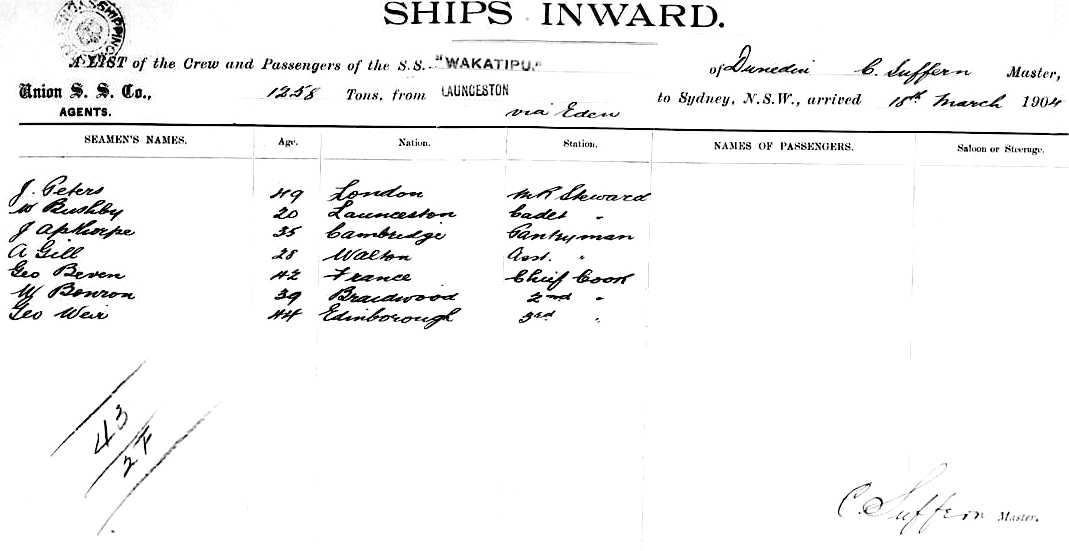 SHIPS INWARD.
A LIST of the Crew and Passengers of the S.S. "WAKATIPU." of Dunedin C. Suffern Master,
Union S. S. Co., AGENTS. 1258 Tons, from LAUNCESTON via Eden to Sydney, N.S.W., arrived 18th March 1904
SEAMEN'S NAMES. Age. Nation. Station. NAMES OF PASSENGERS. Saloon or Steerage.
J. Peters 49 London M R Steward
W Bushby 20 Launceston Cadet "
J Apthorpe 35 Cambridge Pantryman
A Gill 28 Walton Asst. "
Geo Beven 42 France Chief Cook
W Bowron 39 Braidwood 2nd "
Geo Weir 44 Edinborough 3rd "
43
C. Suffern Master.